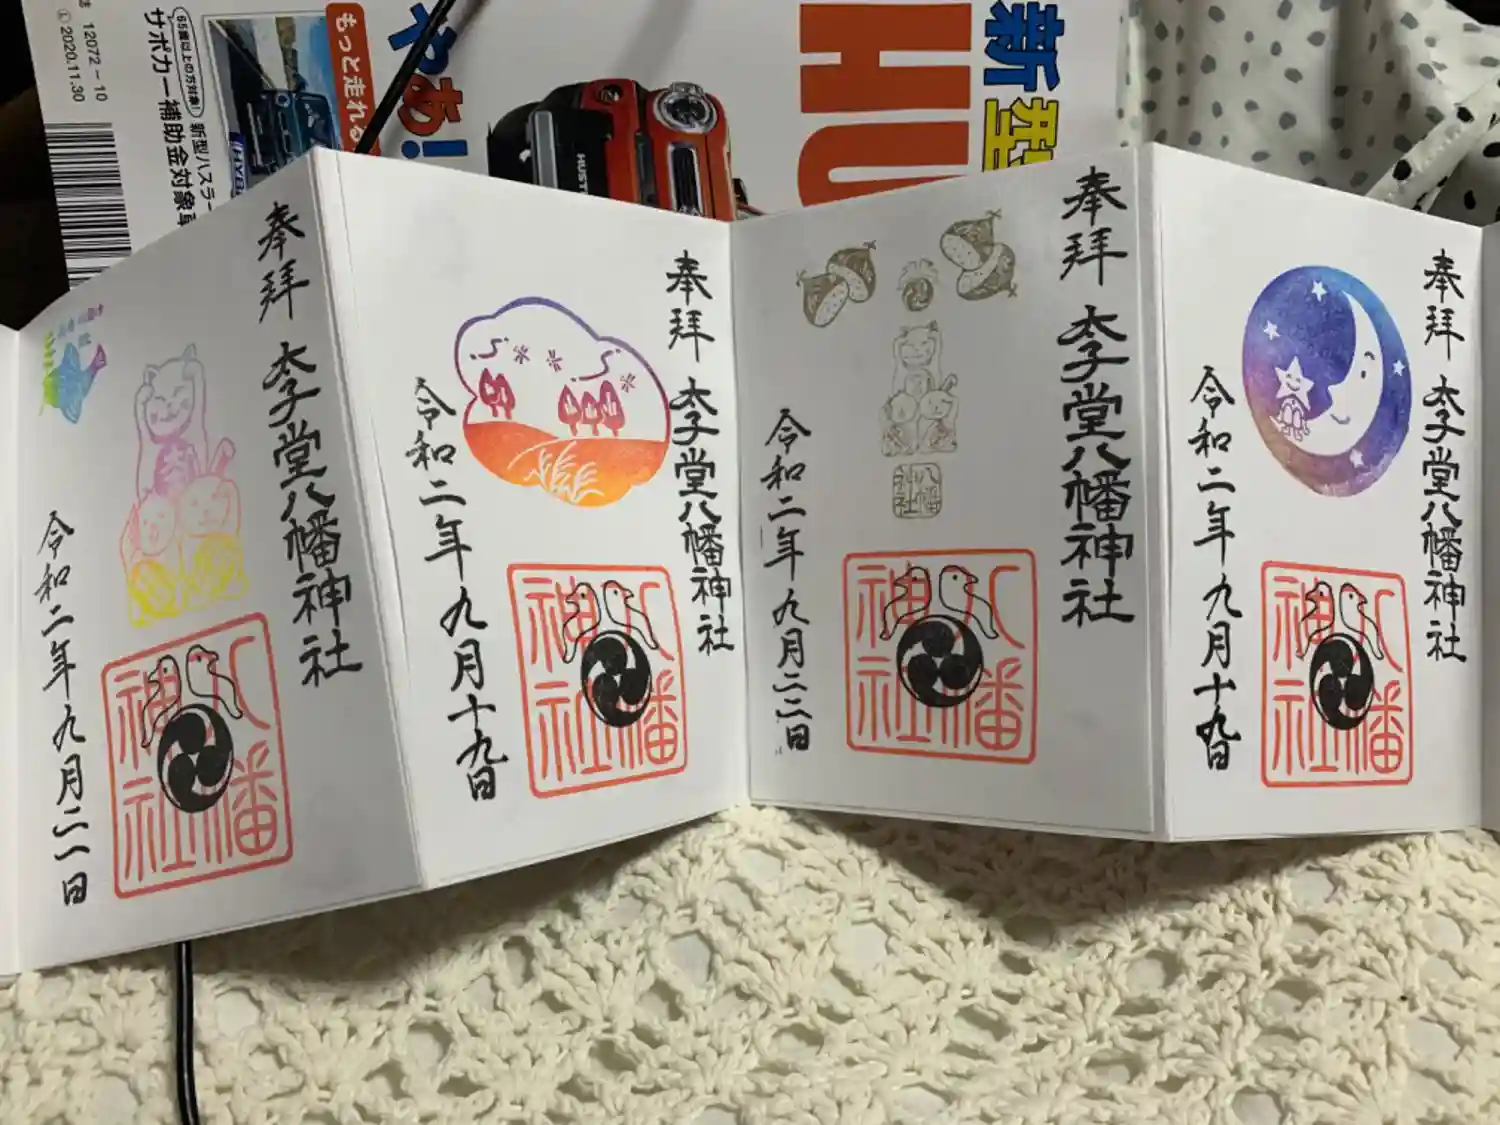 12072-10
2020.11.30
65歳以上の方対象!
サポカー補助金対象車
新型ハスラー
もっと走れる
やあ!
HU
新型
HUST
奉拝
太子堂八幡神社
令和二年九月二一日
八幡神社
奉拝
太子堂八幡神社
令和二年九月十九日
八幡神社
奉拝
太子堂八幡神社
八幡神社
令和二年九月二二日
八幡神社
奉拝
太子堂八幡神社
令和二年九月十九日
八幡神社